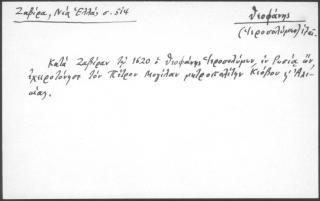 Ζαβίρα, Νέα Ἑλλάς σ. 514
Θεοφάνης
Κατὰ Ζαβίραν τῷ 1620 ὁ Θεοφάνης Ἱεροσολύμων, ἐν Ρωσίᾳ ὤν,
ἐχειροτόνησε τὸν Πέτρον Μογίλαν μητροπολίτην Κιόβου